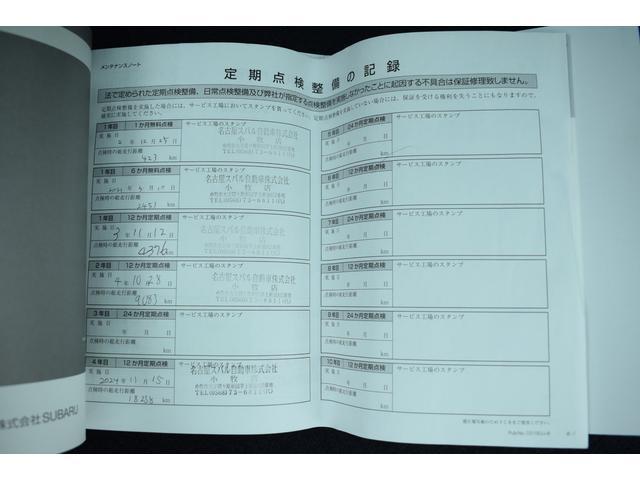 メンテナンスノート
定期点検整備の記録
法で定められた定期点検整備、日常点検整備及び弊社が指定する点検整備を実施しなかったことに起因する不具合は保証修理致しません。
定期点検整備を実施した場合には、サービス工場においてスタンプを貰ってください。定期点検整備を実施していない場合には、保証を受ける権利を失うことにもなりますので、
確実に実施してください。
1年目 1か月無料点検 サービス工場のスタンプ
実施日 2年12月25日
点検時の総走行距離 423 km
名古屋スバル自動車株式会社
小牧店
1年目 6か月無料点検 サービス工場のスタンプ
実施日
点検時の総走行距離 2451 km
名古屋スバル自動車株式会社
小牧店
1年目 12か月定期点検 サービス工場のスタンプ
実施日 3年11月12日
点検時の総走行距離 4376 km
名古屋スバル自動車株式会社
小牧店
2年目 12か月定期点検 サービス工場のスタンプ
実施日 4年10月28日
点検時の総走行距離 9083 km
名古屋スバル自動車株式会社
小牧店
3年目 24か月定期点検 サービス工場のスタンプ
実施日 年 月 日
点検時の総走行距離 km
4年目 12か月定期点検 サービス工場のスタンプ
実施日 2024年11月15日
点検時の総走行距離 km
名古屋スバル自動車株式会社
小牧店
5年目 24か月定期点検 サービス工場のスタンプ
実施日 年 月 日
点検時の総走行距離 km
6年目 12か月定期点検 サービス工場のスタンプ
実施日 年 月 日
点検時の総走行距離 km
7年目 24か月定期点検 サービス工場のスタンプ
実施日 年 月 日
点検時の総走行距離 km
8年目 12か月定期点検 サービス工場のスタンプ
実施日 年 月 日
点検時の総走行距離 km
9年目 24か月定期点検 サービス工場のスタンプ
実施日 年 月 日
点検時の総走行距離 km
10年目 12か月定期点検 サービス工場のスタンプ
実施日 年 月 日
点検時の総走行距離 km
株式会社 SUBARU